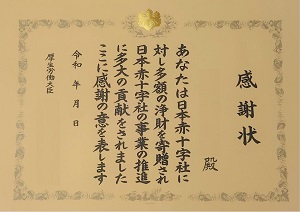 感謝状
殿
あなたは日本赤十字社に
対し多額の浄財を寄贈され
日本赤十字社の事業の推進
に多大の貢献をされました
ここに感謝の意を表します
令和 年 月 日
厚生労働大臣